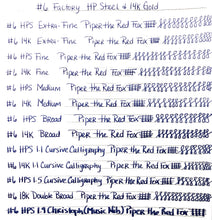 #6 Factory HP Steel & 14K Gold
#6 HPS Extra-Fine Piper the Red Fox
#6 14K Extra-Fine Piper the Red Fox
#6 HPS Fine Piper the Red Fox
#6 14K Fine Piper the Red Fox
#6 HPS Medium Piper the Red Fox
#6 14K Medium Piper the Red Fox
#6 HPS Broad Piper the Red Fox
#6 14K Broad Piper the Red Fox
#6 HPS 1.1 Cursive Calligraphy Piper the Red Fox
#6 14K 1.1 Cursive Calligraphy Piper the Red Fox
#6 HPS 1.5 Cursive Calligraphy Piper the Red Fox
#6 18K Double Broad Piper the Red Fox
#6 HPS 1.9 Christoph (Music Nib) Piper the Red Fox